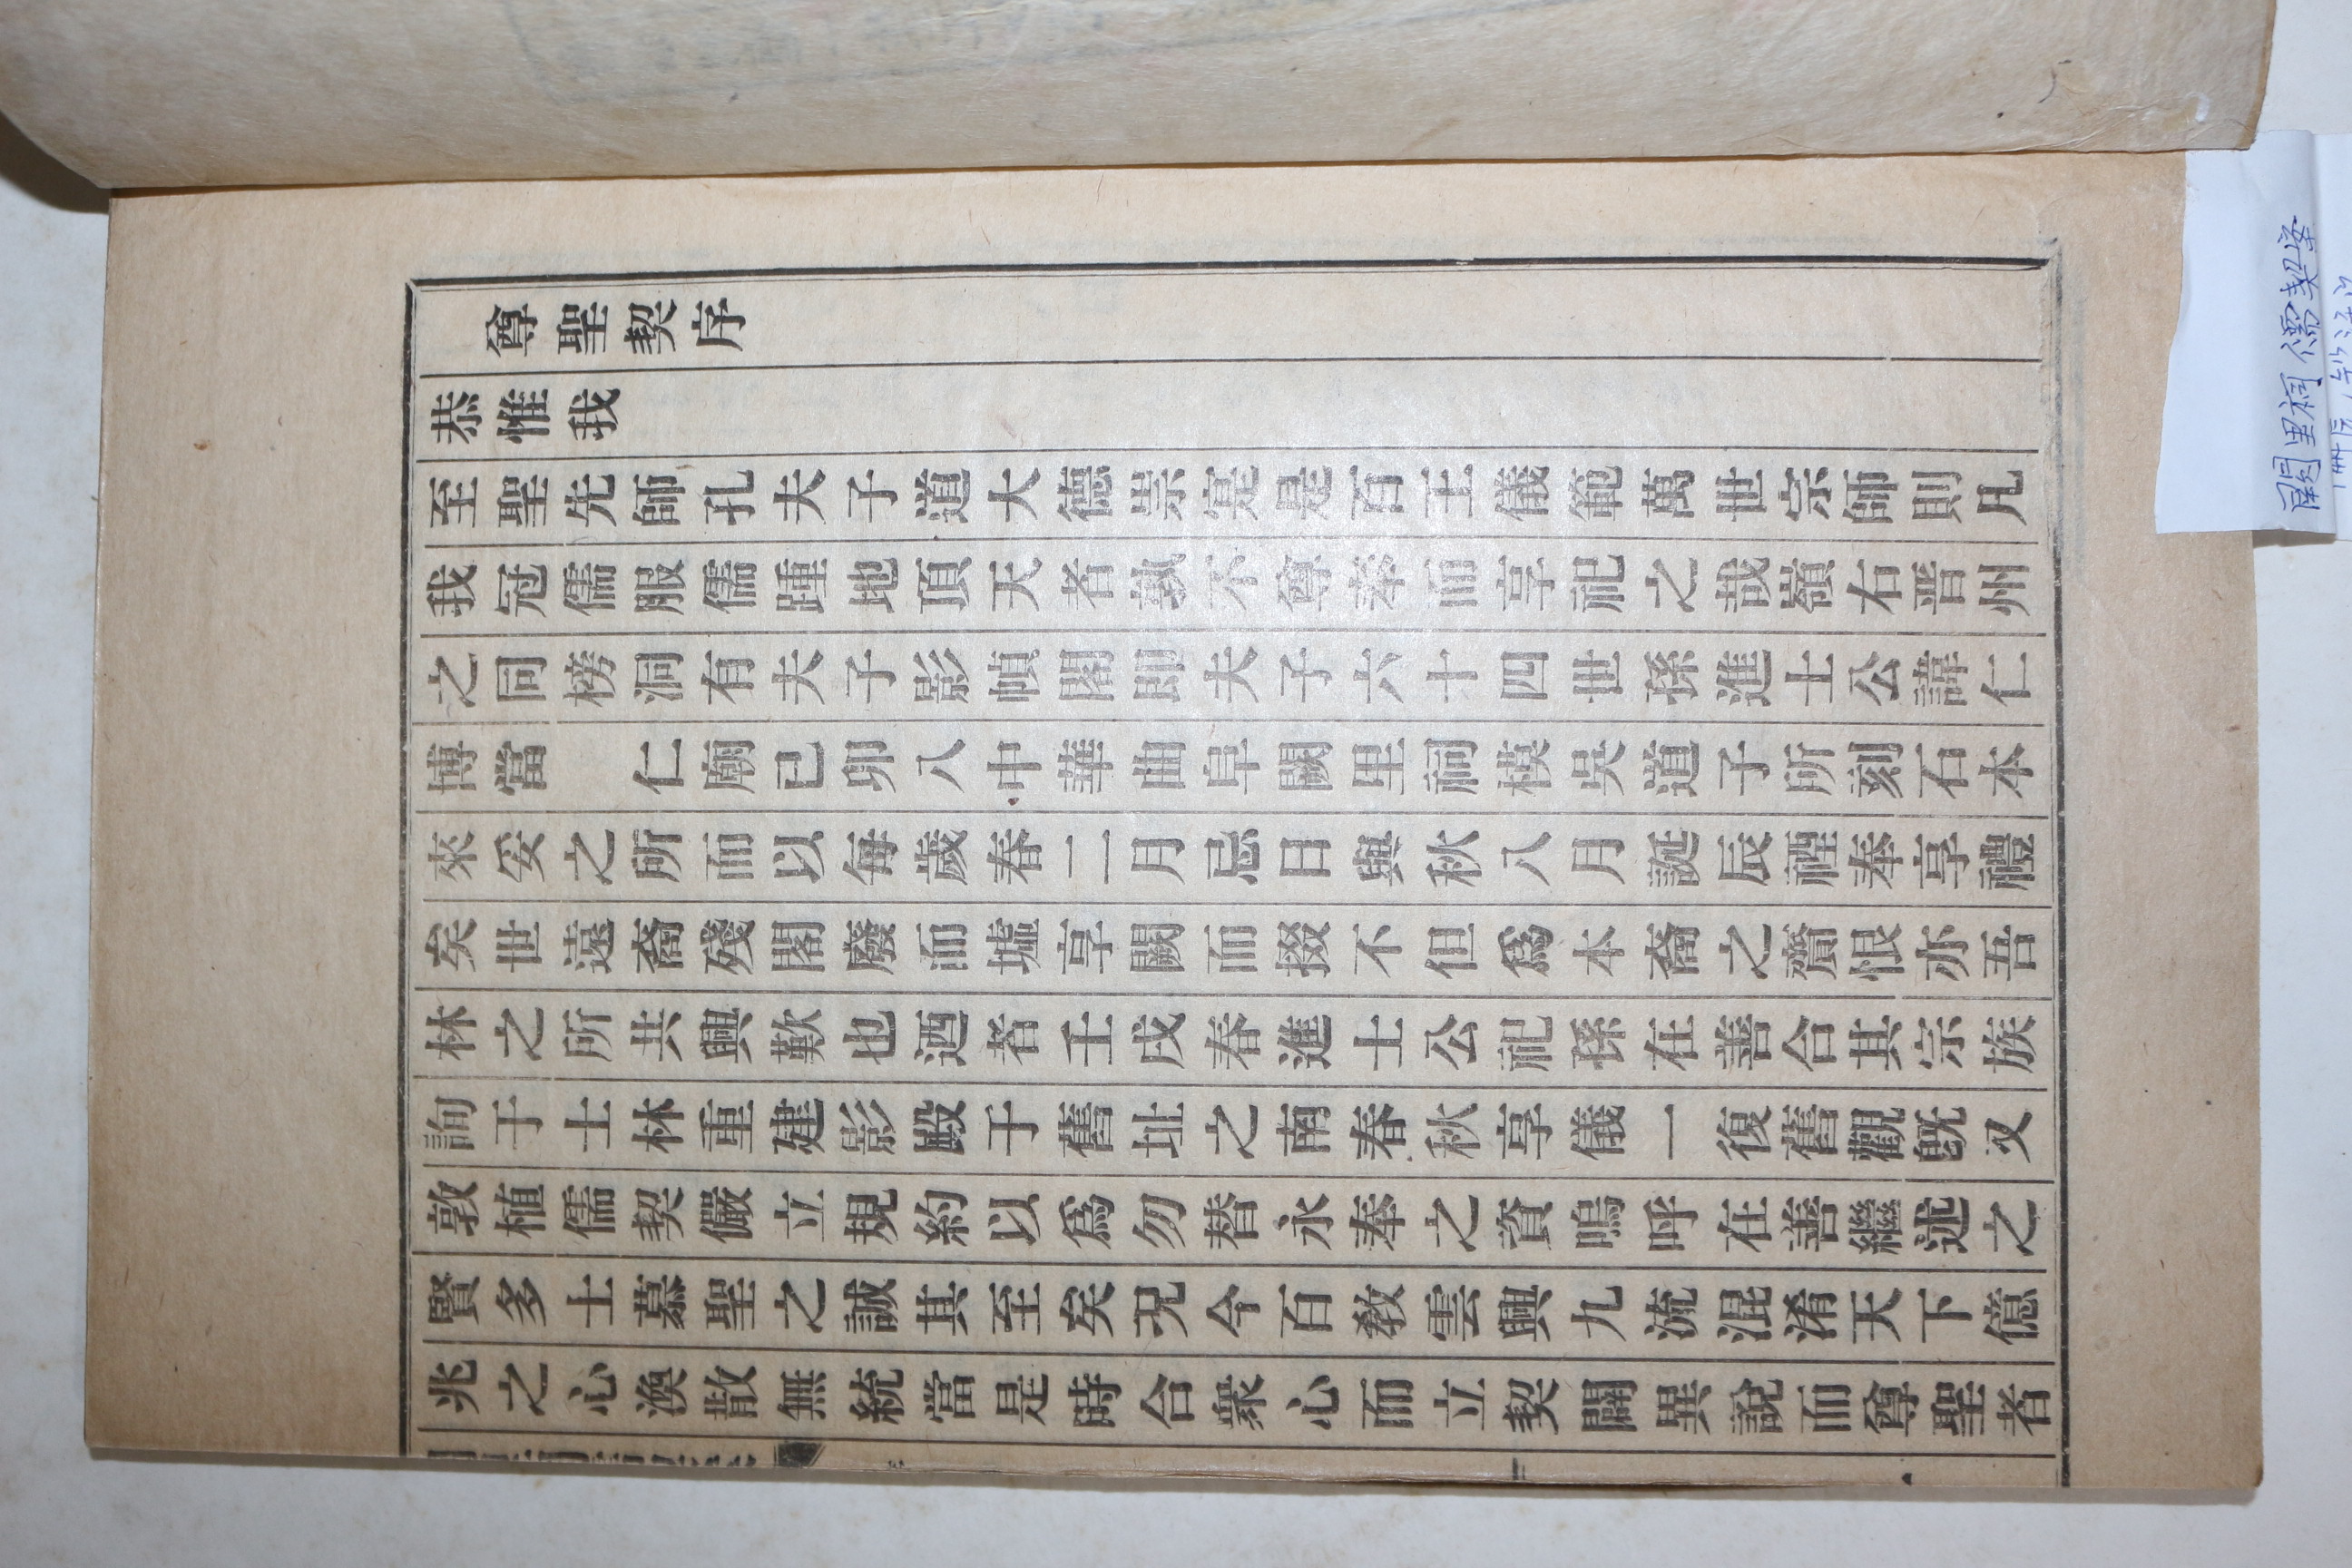 尊聖契序
恭惟我
至聖先師孔夫子道大德崇寔是百王儀範萬世宗師則凡
我冠儒服儒踵地頂天者孰不尊奉而享祀之哉嶺右晋州
之同榜洞有夫子影幀閣即夫子六十四世孫進士公諱仁
博當 仁廟已卯八中華曲阜闕里祠模吳道子所刻石本
來妥之所而以每歲春二月忌日與秋八月誕辰禋奉享禮
矣世遠裔殘閣廢而墟享闕而掇不但爲本裔之齎恨亦吾
林之所共興歎也迺者壬戌春進士公祀孫在善合其宗族
詢于士林重建影殿于舊址之南春秋享儀一復舊觀旣又
敦植儒契儼立規約以爲勿替永奉之資嗚呼在善繼述之
賢多士慕聖之誠其至矣况今百敎雲興九流混淆天下億
兆之心渙散無統當是時合衆心而立契闢異說而尊聖者
闕里祠儒契案